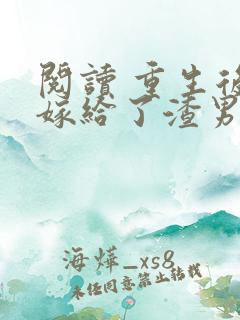 閱讀 重生後
嫁給了渣男
海燁_xs8
未経同意禁止转载